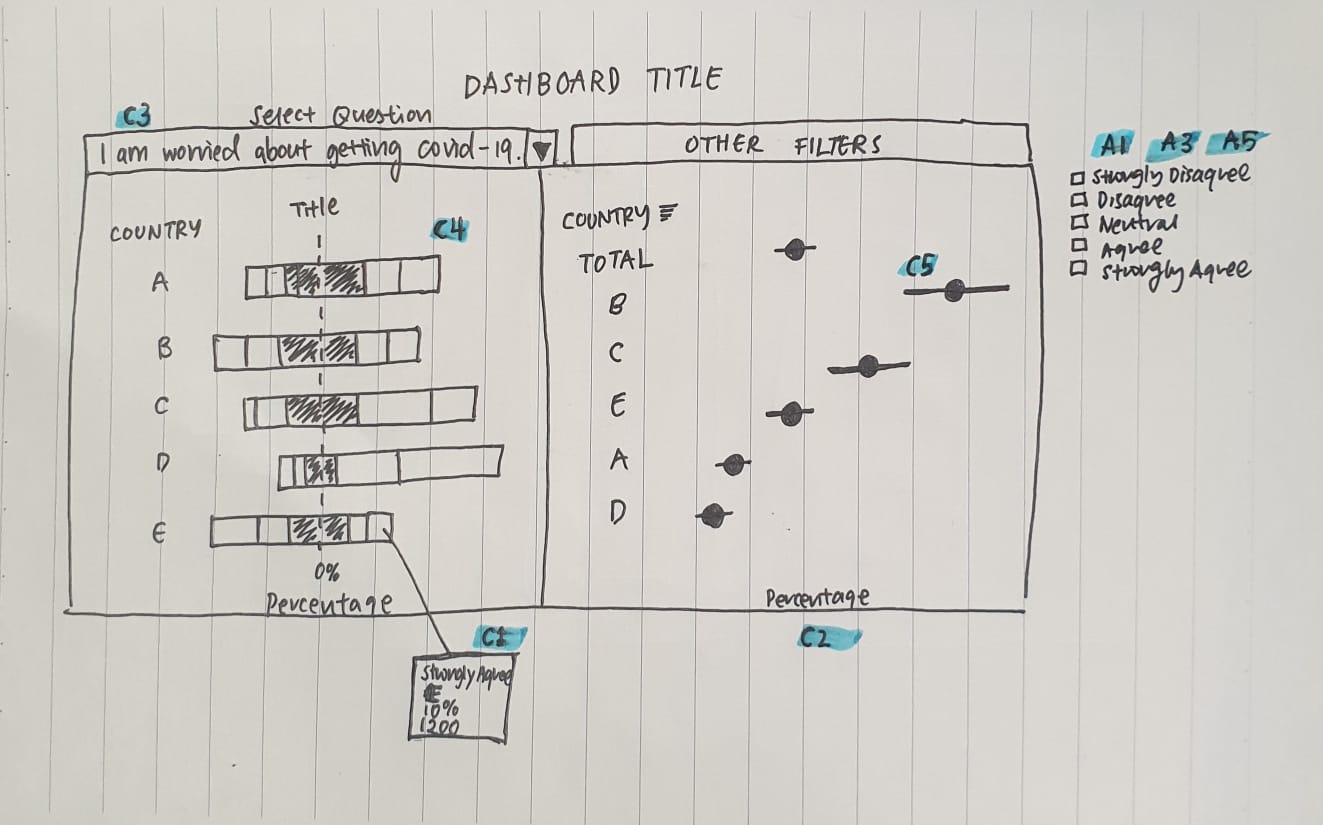 DASHBOARD TITLE
C3 Select Question
I am worried about getting covid-19.
OTHER FILTERS
A1 A3 A5
Strongly Disagree
Disagree
Neutral
Agree
Strongly Agree
Title
COUNTRY
C4
A
B
C
D
E
0%
Percentage
C1
Strongly Agree
E
10%
1200
COUNTRY
TOTAL
C5
B
C
E
A
D
Percentage
C2